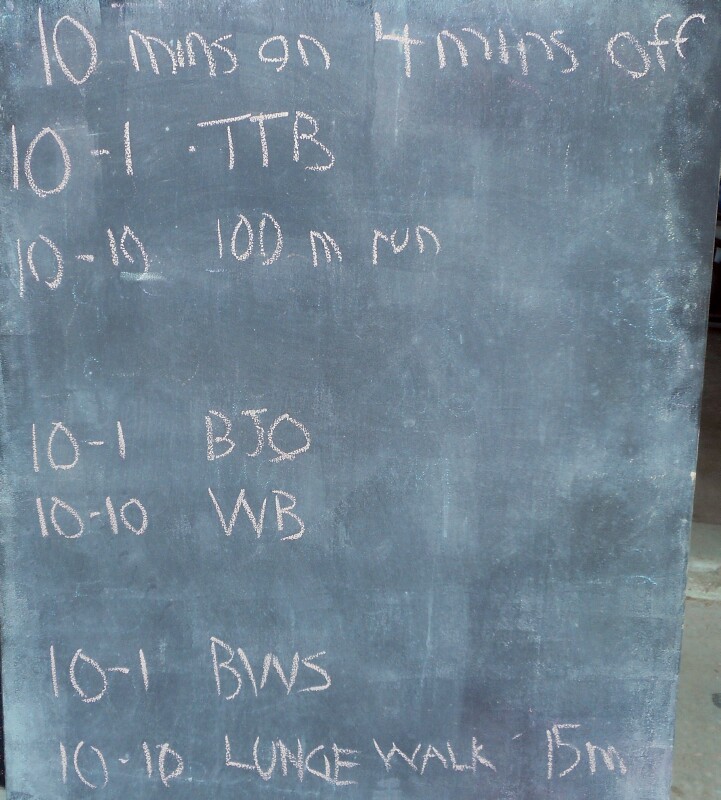 10 mins on 4 mins off
10-1 TTB
10-10 100 m run
10-1 BJO
10-10 WB
10-1 BWS
10-10 LUNGE WALK 15m